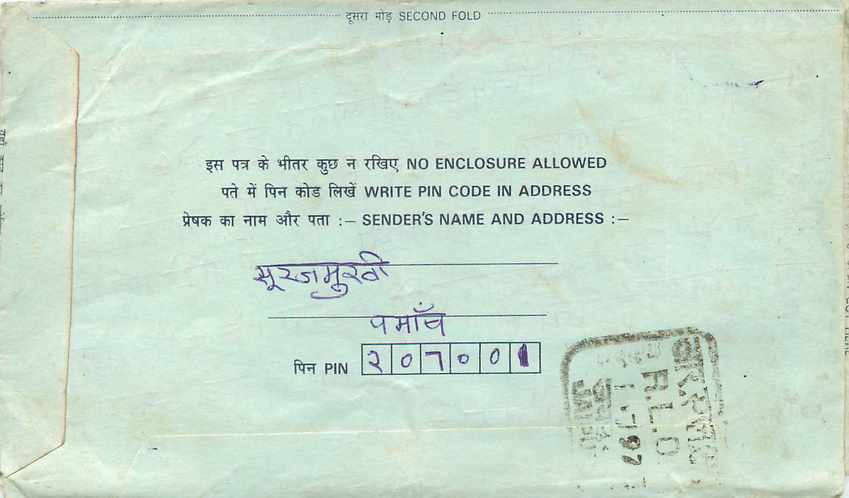 दूसरा मोड़ SECOND FOLD
इस पत्र के भीतर कुछ न रखिए NO ENCLOSURE ALLOWED
पते में पिन कोड लिखें WRITE PIN CODE IN ADDRESS
प्रेषक का नाम और पता :— SENDER'S NAME AND ADDRESS :—
सूरजमुखी
पमाँच
पिन PIN २०७००1
R.L.O.